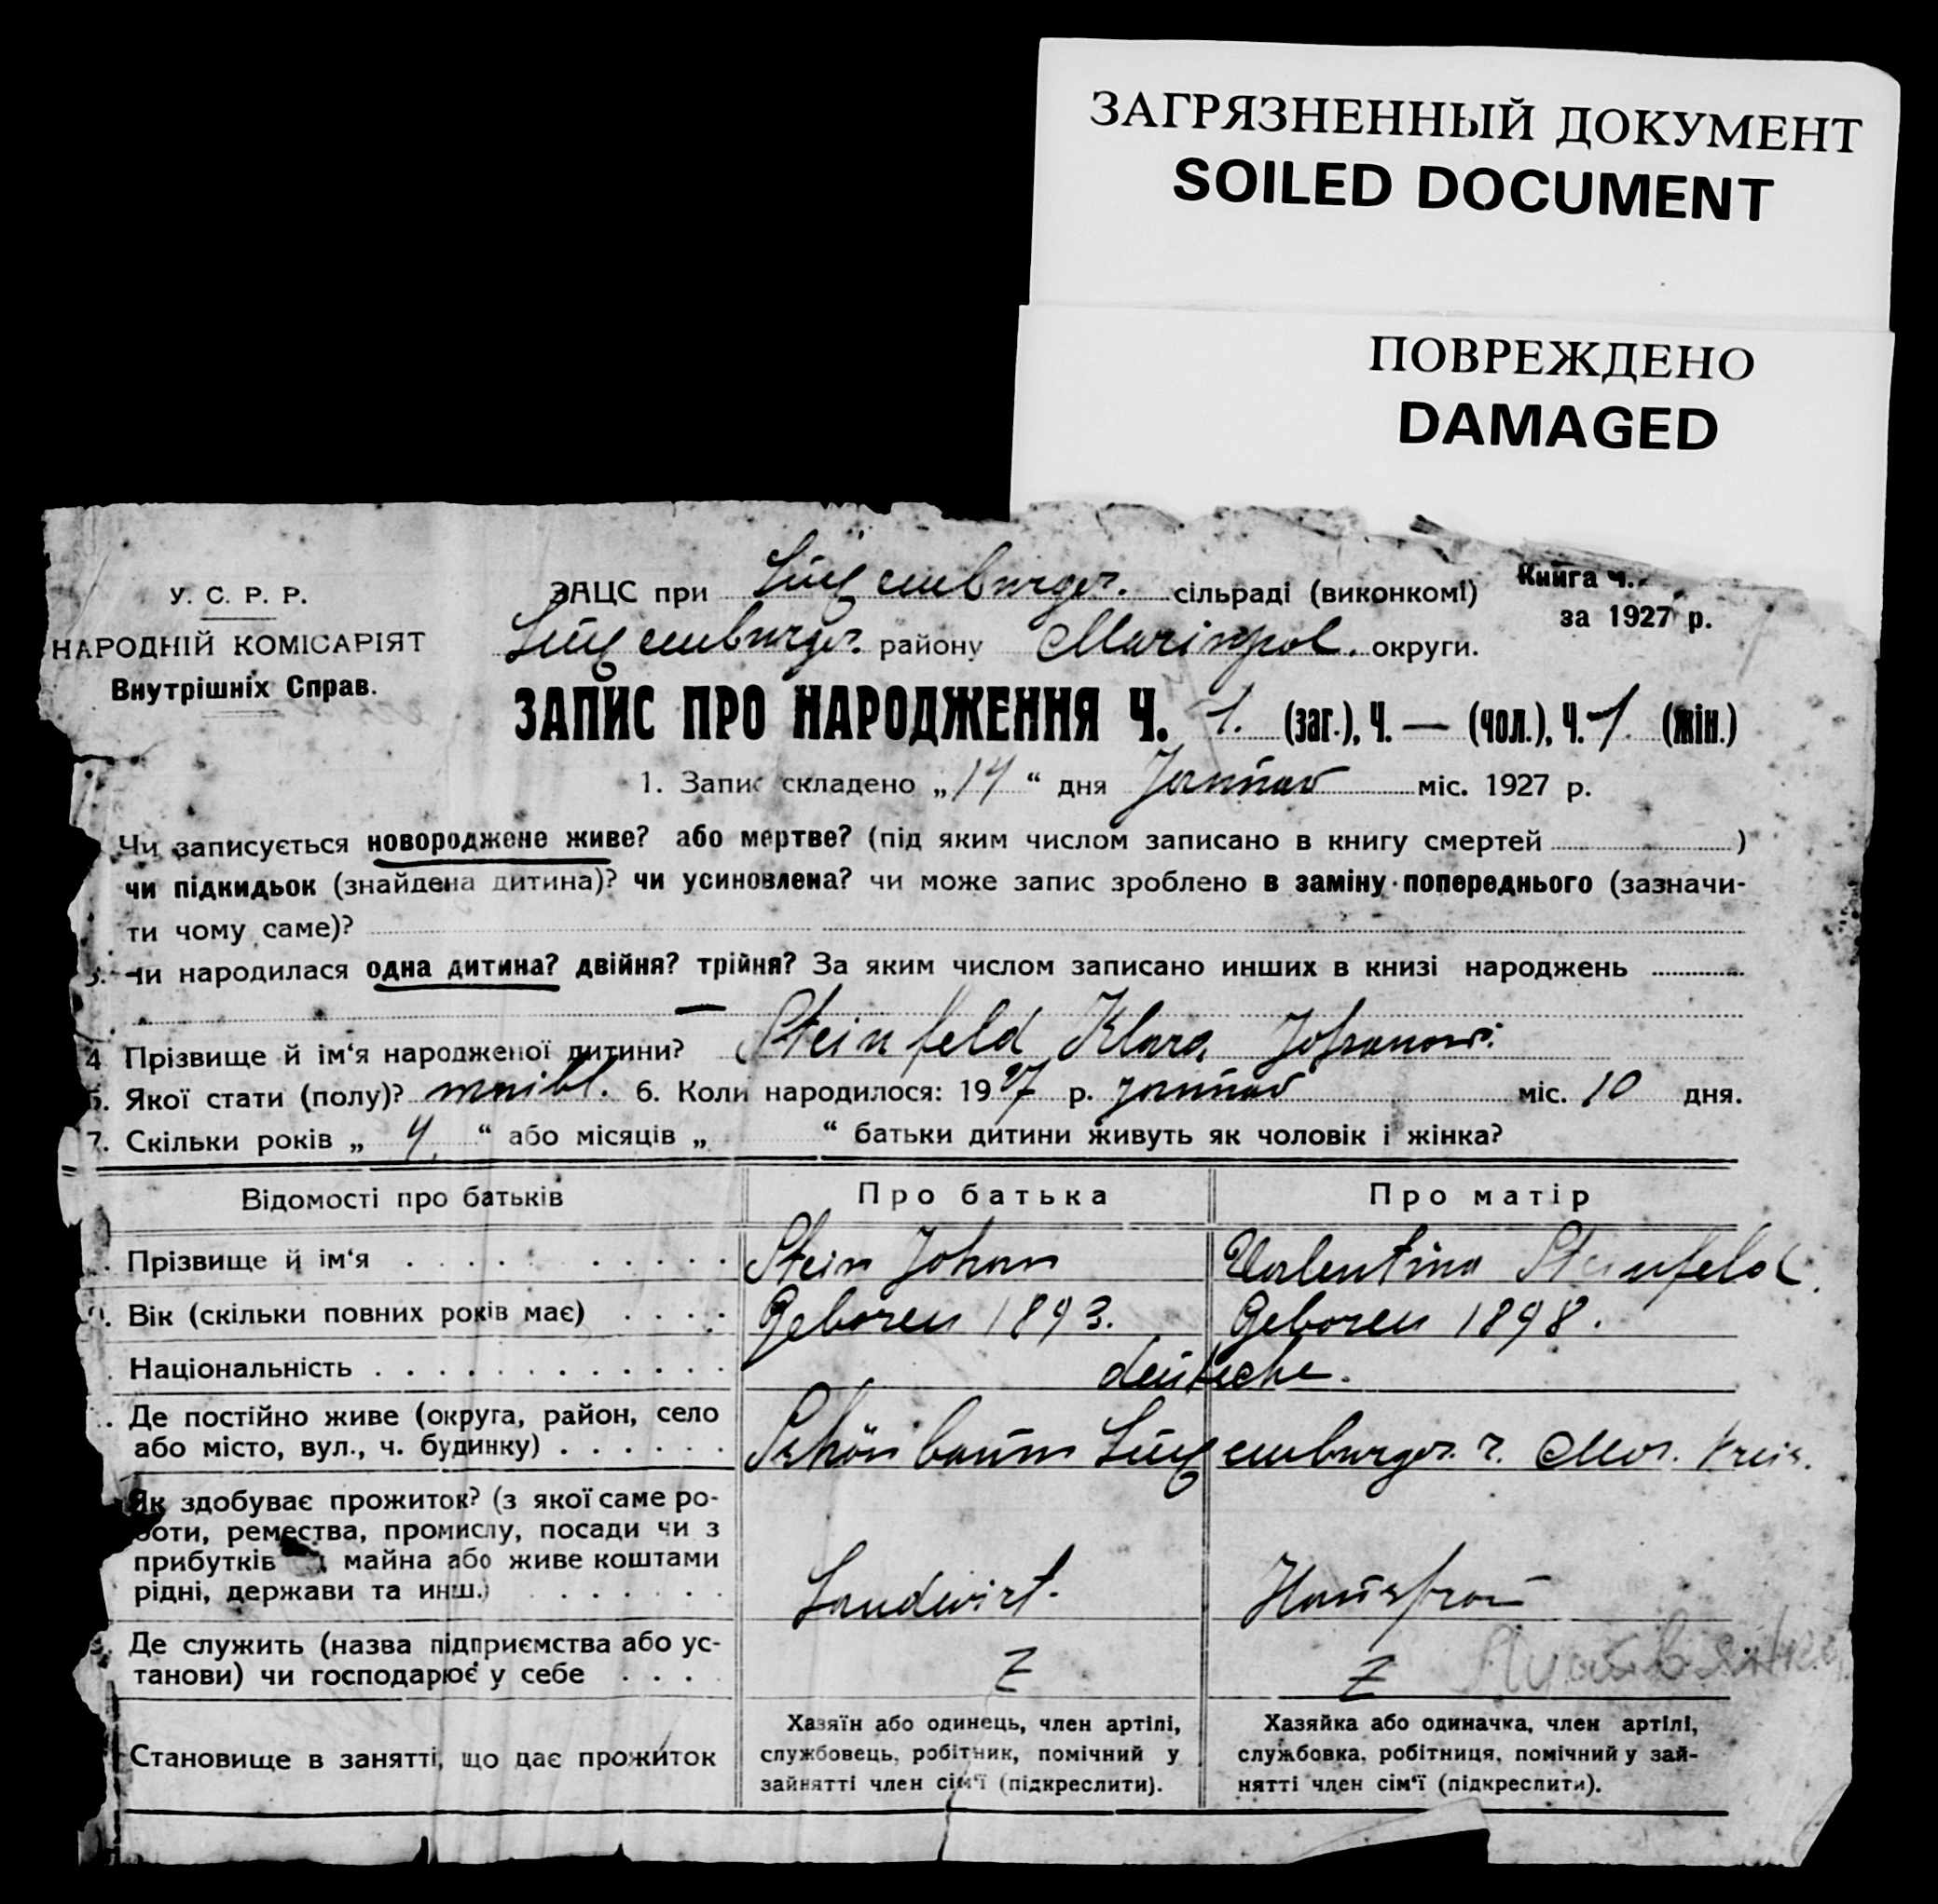 ЗАГРЯЗНЕННЫЙ ДОКУМЕНТ
SOILED DOCUMENT
ПОВРЕЖДЕНО
DAMAGED
У. С. Р. Р.
НАРОДНІЙ КОМІСАРІЯТ
Внутрішніх Справ.
ЗАЦС при Lüxemburger. сільраді (виконкомі)
Книга ч.
за 1927 р.
Lüxemburger. району Mariupol. округи.
ЗАПИС ПРО НАРОДЖЕННЯ Ч. 1. (заг.), Ч. — (чол.), Ч. 1. (жін.)
1. Запис складено „14“ дня Januar міс. 1927 р.
Чи записується новороджене живе? або мертве? (під яким числом записано в книгу смертей )
чи підкидьок (знайдена дитина)? чи усиновлена? чи може запис зроблено в заміну попереднього (зазначи-
ти чому саме)?
3. Чи народилася одна дитина? двійня? трійня? За яким числом записано инших в книзі народжень
—
4 Прізвище й ім‘я народженої дитини? Steinfeld Klara
5. Якої стати (полу)? weibl. 6. Коли народилося: 1927 р. Januar міс. 10 дня.
7. Скільки років „ 4 “ або місяців „ “ батьки дитини живуть як чоловік і жінка?
Відомості про батьків Про батька Про матір
Прізвище й ім‘я Stein Johan Valentina Steinfeld
Вік (скільки повних років має) Geboren 1893. Geboren 1898.
Національність deutsche.
Де постійно живе (округа, район, село
або місто, вул., ч. будинку) Schönbaum Lüxemburger. r. Mar. Kreis.
Як здобуває прожиток? (з якої саме ро-
боти, ремества, промислу, посади чи з
прибутків майна або живе коштами
рідні, держави та инш.) Landwirt. Hausfrau
Де служить (назва підприємства або ус-
танови) чи господарює у себе Z Z
Становище в занятті, що дає прожиток
Хазяїн або одинець, член артілі,
службовець, робітник, помічний у
зайнятті член сім‘ї (підкреслити).
Хазяйка або одиначка, член артілі,
службовка, робітниця, помічний у зай-
нятті член сім‘ї (підкреслити).